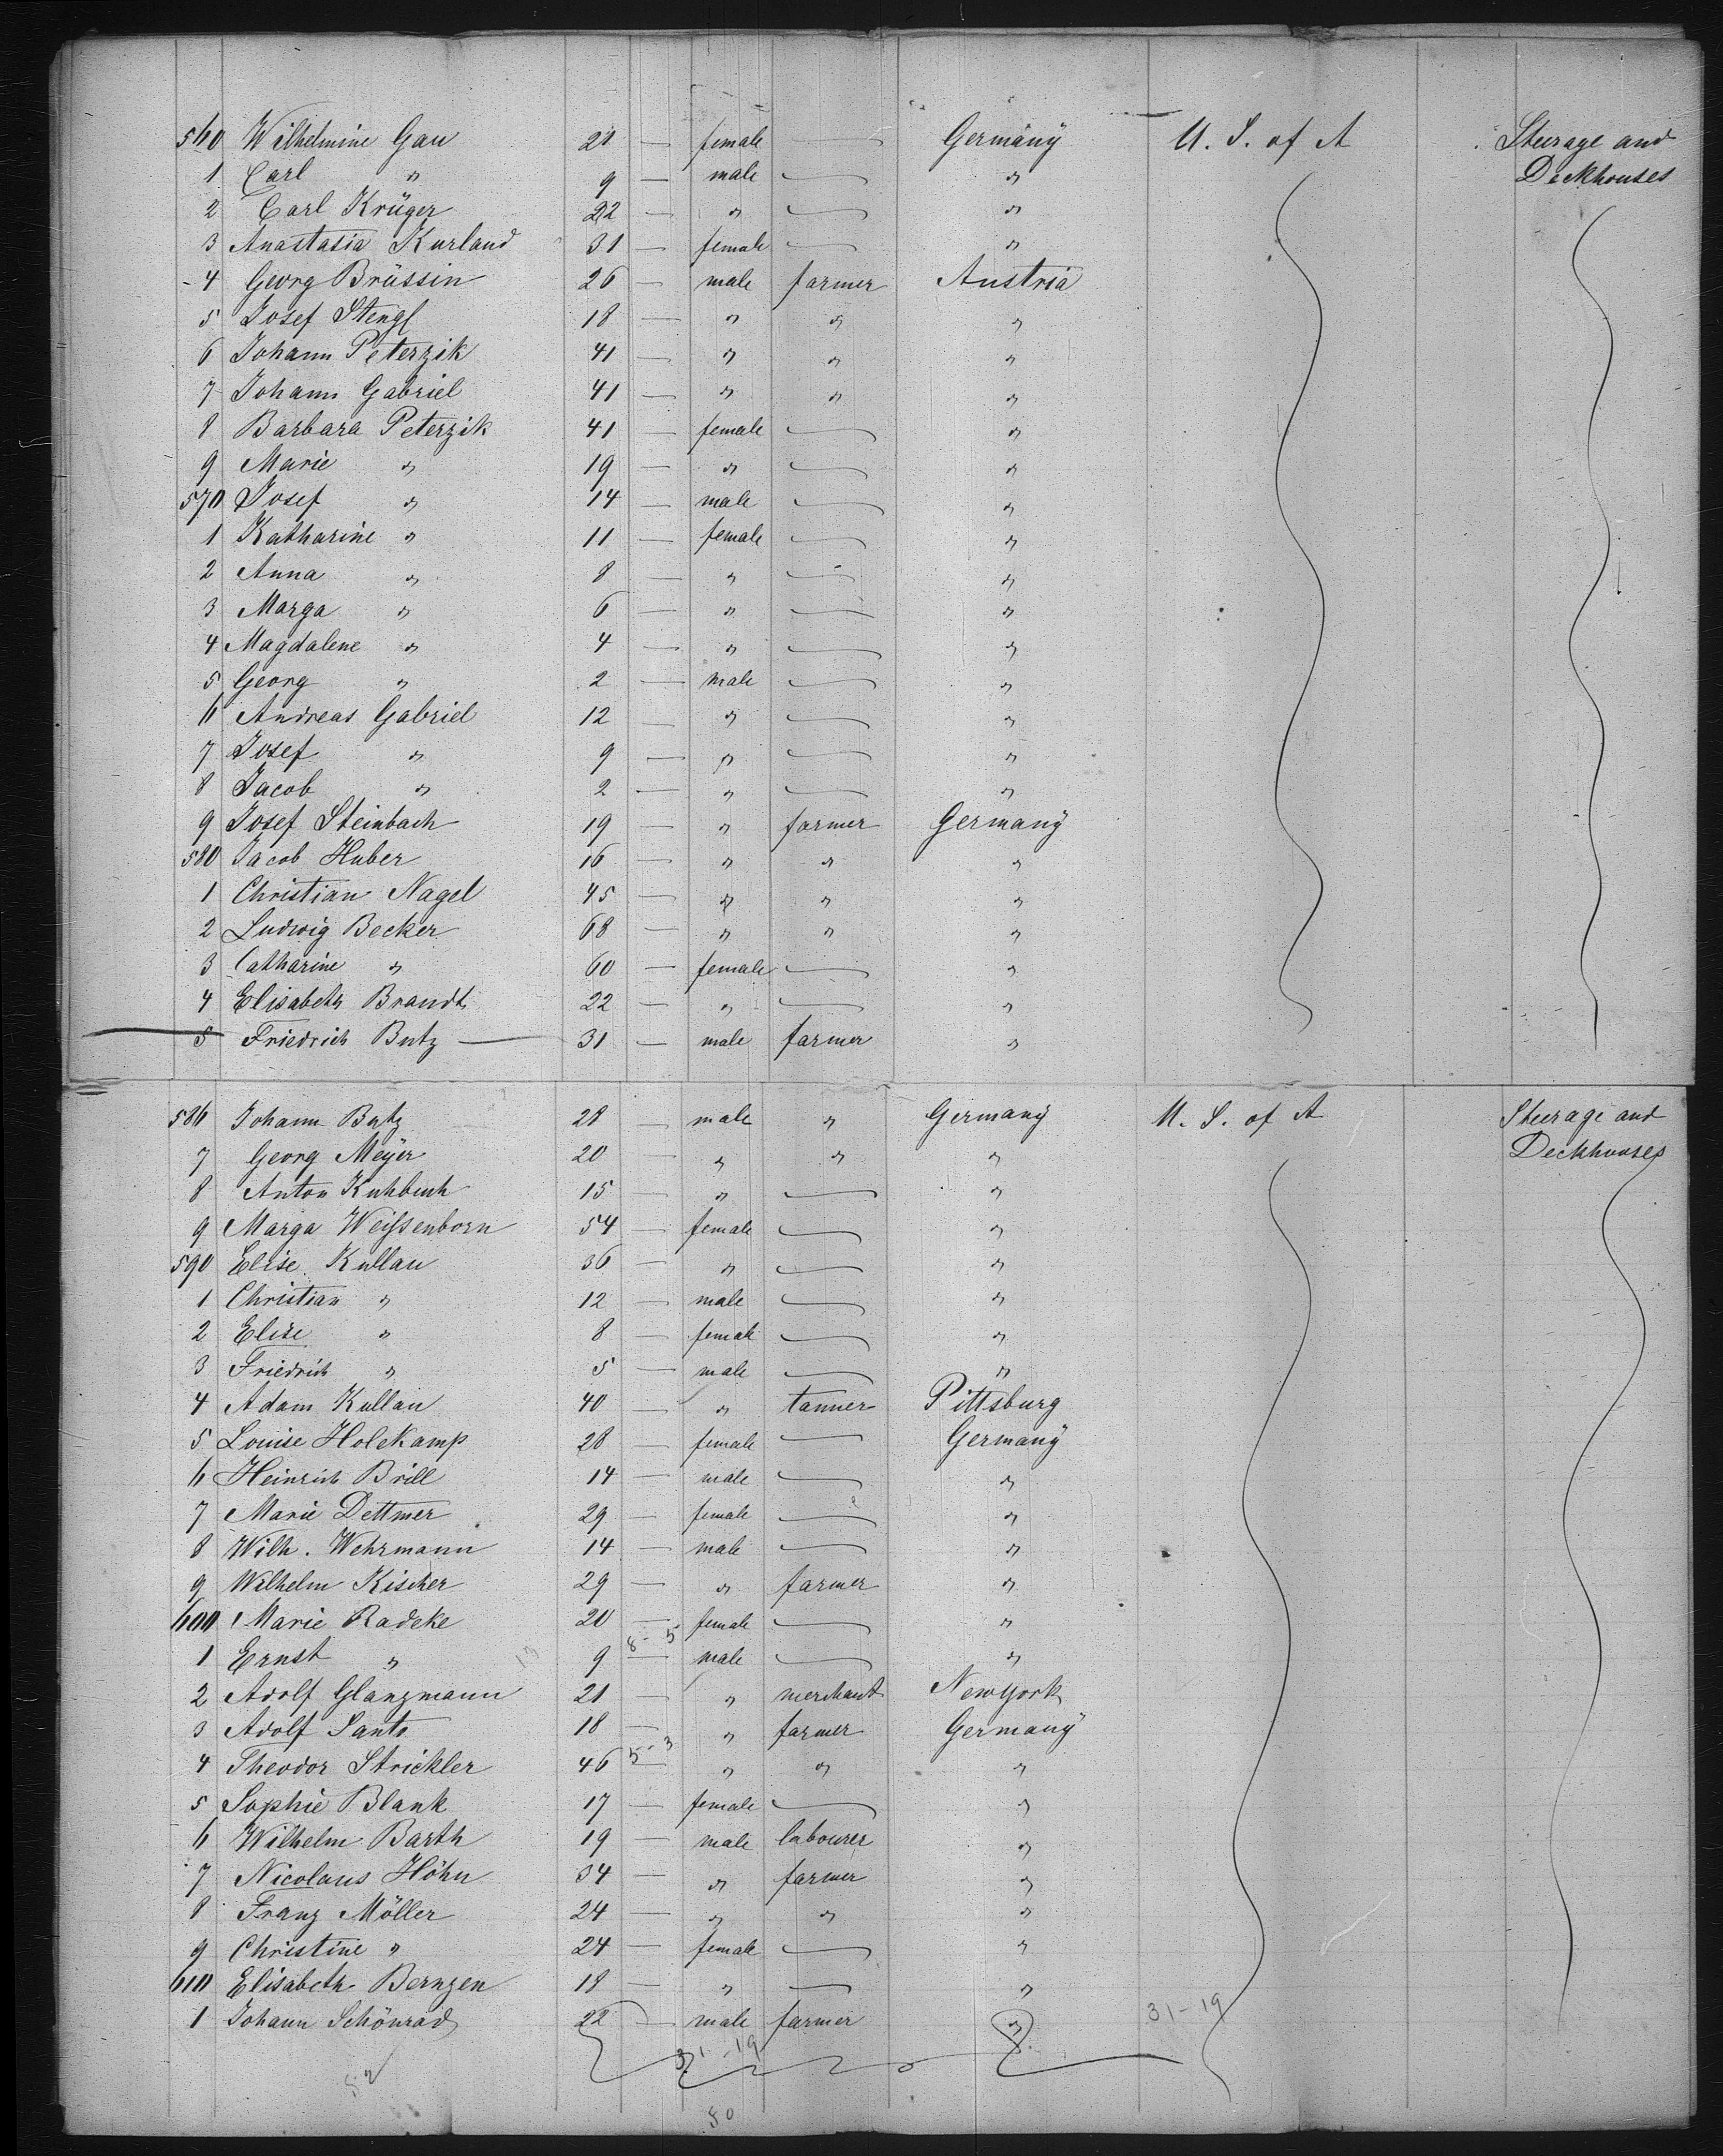 560 Wilhelmine Gau 21 — female — Germany U. S. of A Steerage and
Deckhouses
1 Carl " 9 — male — "
2 Carl Krüger 22 — " — "
3 Anastasia Kurland 31 — female — "
4 Georg Brüssin 26 — male farmer Austria
5 Josef Stengl 18 — " " "
6 Johann Peterzik 41 — " " "
7 Johann Gabriel 41 — " " "
8 Barbara Peterzik 41 — female — "
9 Marie " 19 — " — "
570 Josef " 14 — male — "
1 Katharine " 11 — female — "
2 Anna " 8 — " — "
3 Marga " 6 — " — "
4 Magdalene " 4 — " — "
5 Georg " 2 — male — "
6 Andreas Gabriel 12 — " — "
7 Josef " 9 — " — "
8 Jacob " 2 — " — "
9 Josef Steinbach 19 — " farmer Germany
580 Jacob Huber 16 — " " "
1 Christian Nagel 45 — " " "
2 Ludwig Becker 68 — " " "
3 Catharine " 60 — female — "
4 Elisabeth Brandt 22 — " — "
5 Friedrich Butz — 31 — male farmer "
586 Johann Butz 28 — male " Germany U. S. of A Steerage and
Deckhouses
7 Georg Meyer 20 — " " "
8 Anton Kuhbuch 15 — " — "
9 Marga Weissenborn 54 — female — "
590 Elise Kullau 36 — " — "
1 Christian " 12 — male — "
2 Elise " 8 — female — "
3 Friedrich " 5 — male — "
4 Adam Kullau 40 — " tanner Pittsburg
5 Louise Holekamp 28 — female — Germany
6 Heinrich Brill 14 — male — "
7 Marie Dettmer 29 — female — "
8 Wilh. Wehrmann 14 — male — "
9 Wilhelm Kischer 29 — " farmer "
600 Marie Radeke 20 — female — "
1 Ernst " 9 8-5 male — "
2 Adolf Glanzmann 21 — " merchant New York
3 Adolf Santo 18 — " farmer Germany
4 Theodor Strickler 46 5-3 " " "
5 Sophie Blank 17 — female — "
6 Wilhelm Barth 19 — male labourer "
7 Nicolaus Höhn 34 — " farmer "
8 Franz Möller 24 — " " "
9 Christine " 24 — female — "
610 Elisabeth Bernzen 18 — " — "
1 Johann Schönrad 22 — male farmer " 31-19
31-19
80